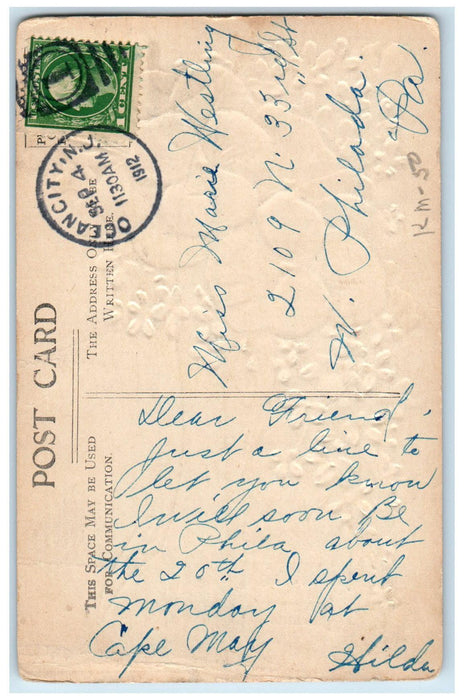 POST CARD
THIS SPACE MAY BE USED
FOR COMMUNICATION.
THE ADDRESS O BE
WRITTEN HERE.
1 CENT
OCEAN CITY, N.J.
SEP 4
1130 AM
1912
Miss Marie Westling
2109 N. 33rd St
W. Philada.
Pa.
KM-50
Dear Friend,
Just a line to
let you know
I will soon Be
in Phila about
the 20th I spent
Monday at
Cape May
Hilda